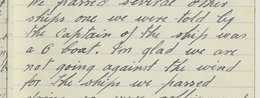 we passed several other
ships one we were told by
the Captain of the ship was
a G boat. I'm glad we are
not going against the wind
for the ships we passed